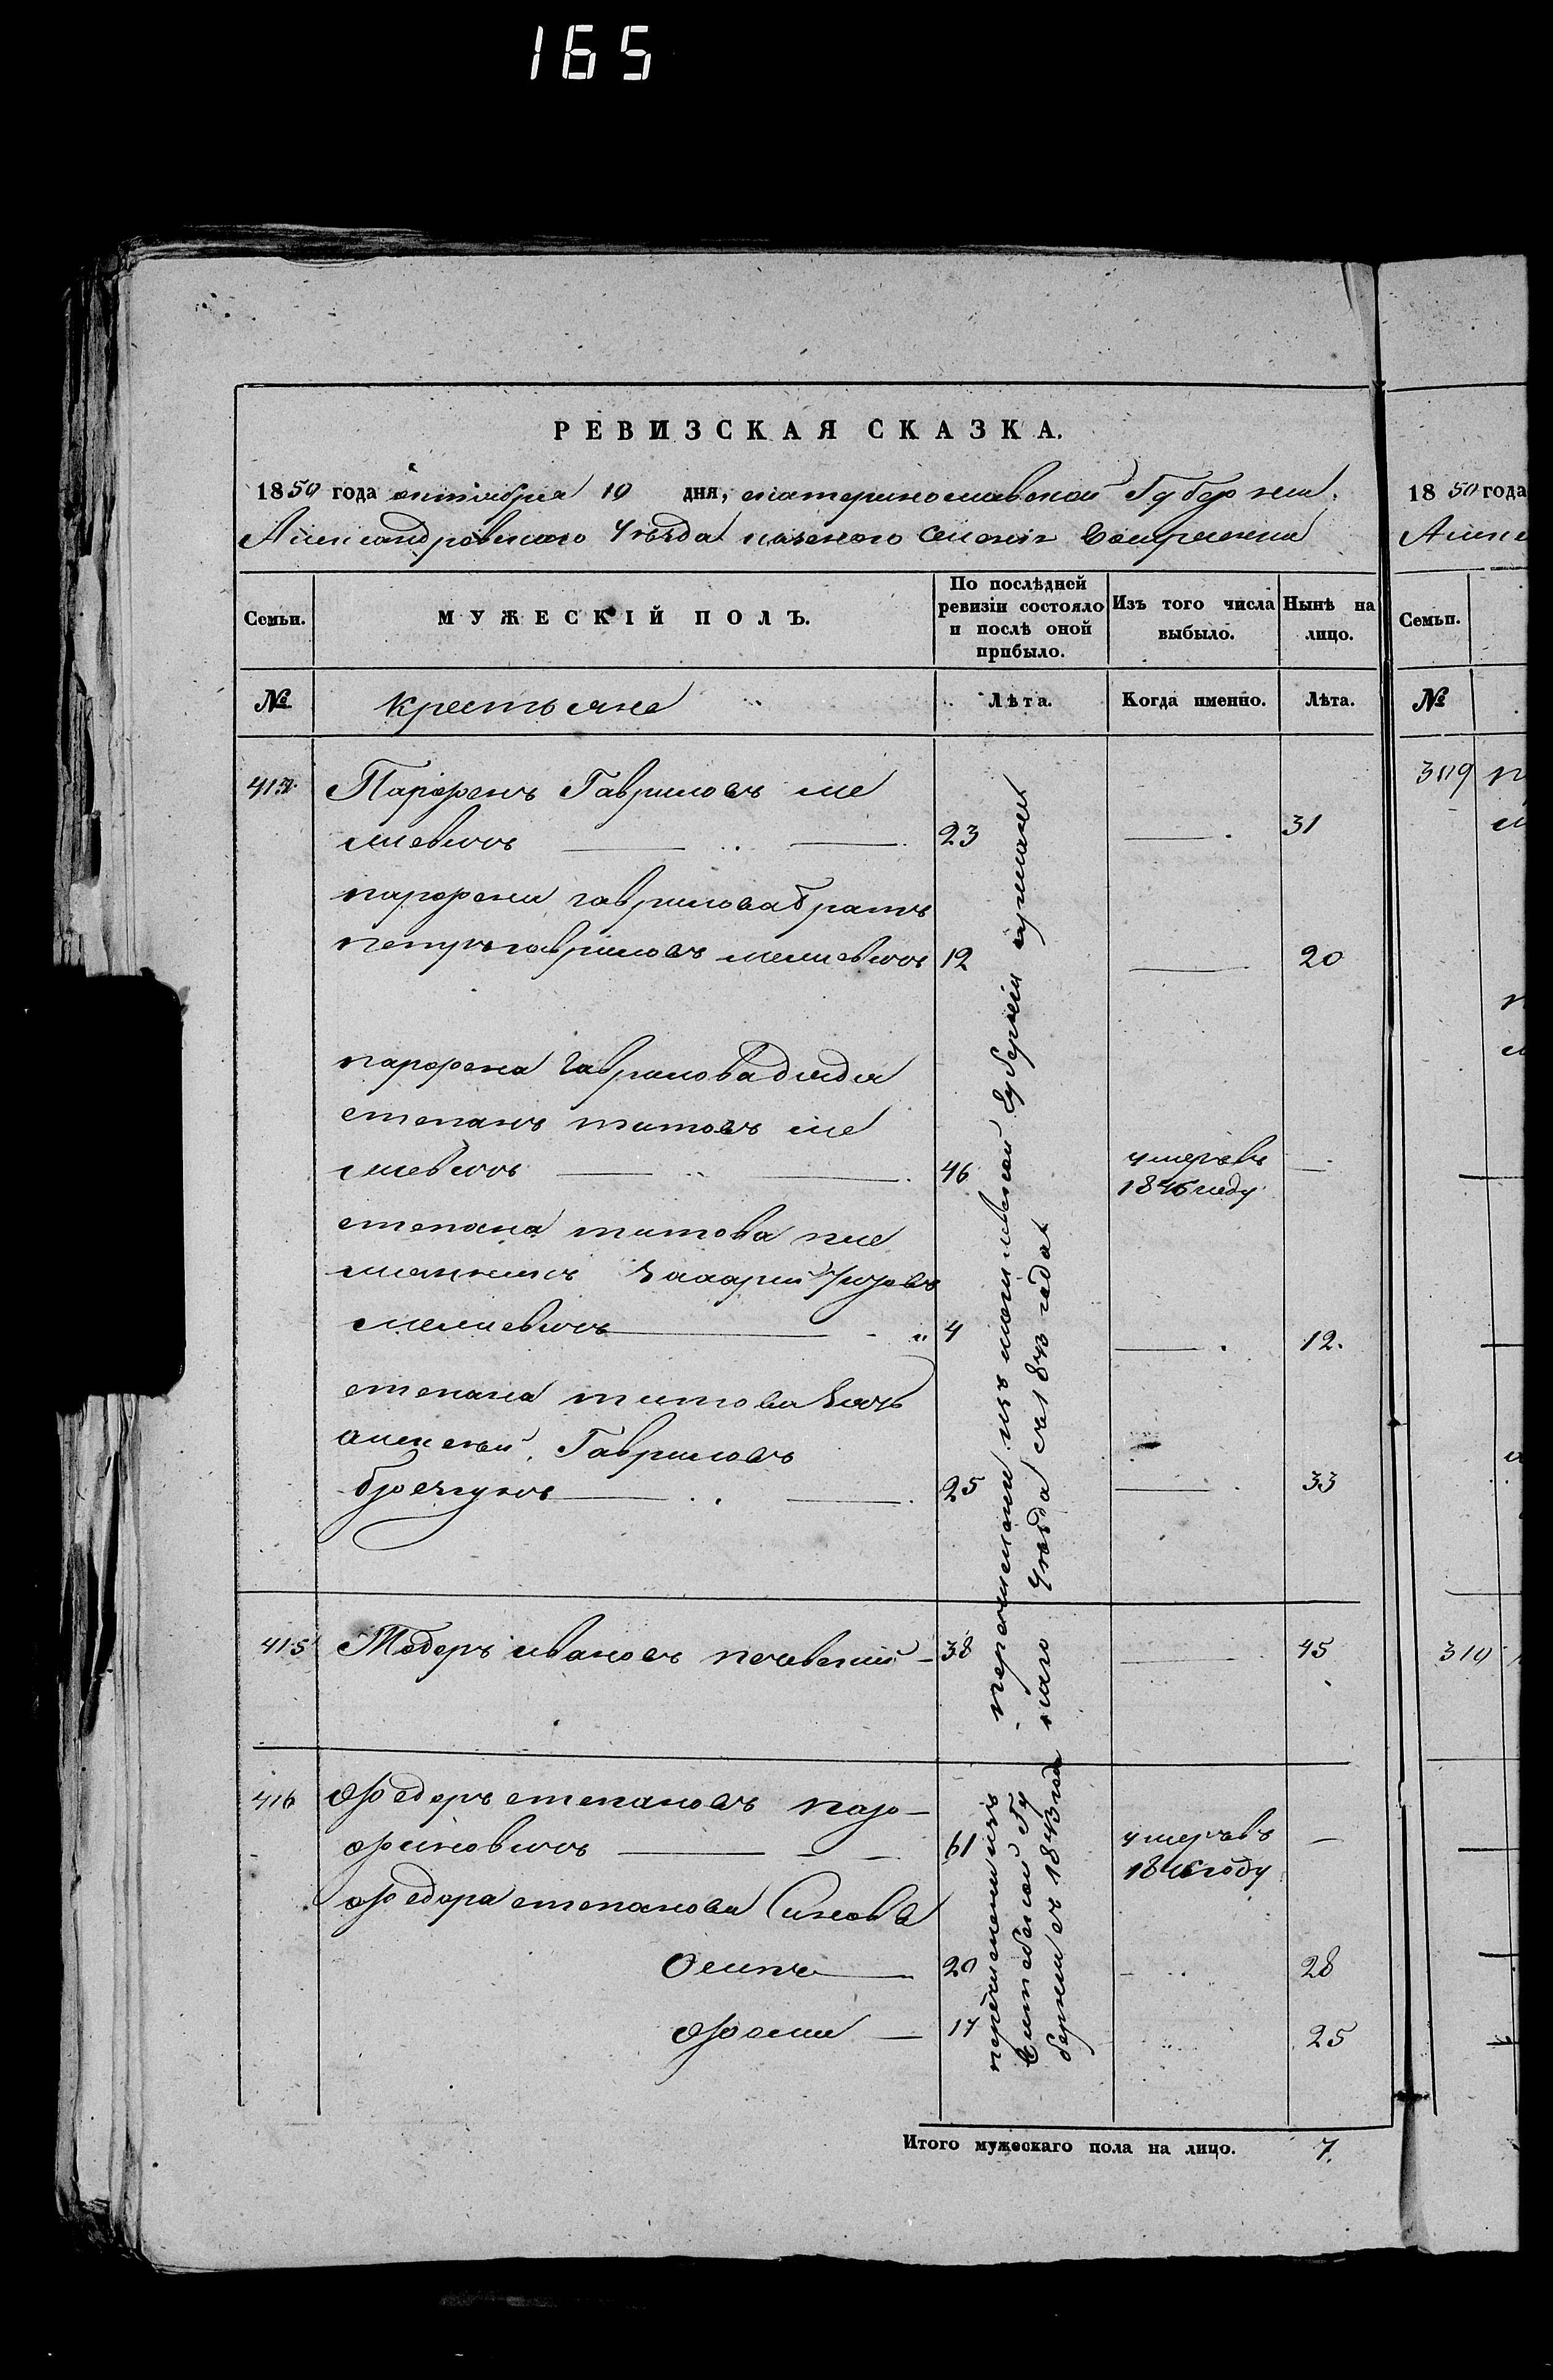 165
РЕВИЗСКАЯ СКАЗКА.
1850 года октября 10 дня, екатеринославской Губернии.
Александровского уезда казеного селения Воскресенки
Семьи. МУЖЕСКІЙ ПОЛЪ. По послѣдней ревизіи состояло и послѣ оной прибыло. Изъ того числа выбыло. Ныне на лицо.
№ крестьяне Лѣта. Когда именно. Лѣта.
Парфенъ Гавриловъ ме
лиевичь 23 31
парфена гаврилова братъ
петръ гавриловъ мелиевичь 12 20
парфена Гаврилова дядя
степанъ титовъ ме
лиевичь 46 умеръ въ 1846 году
степана титова пле
мянникъ Захарий
мелиевичь 4 12.
степана титова зять
алексей Гавриловъ
25 33
415 Федоръ ивановъ 38 45
416 Федоръ степановъ пар-
феновичь 61 умеръ въ 1846 году
федора степанова Синовя
Осипъ 20 28
17 25
перечислени изъ могилевской Губернии
уезда съ 1843 года
перечислени изъ
Витебской Гу
бернии съ 1843 года
Итого мужескаго пола на лицо. 7.
18 50 года
Семьи.
№
309
310